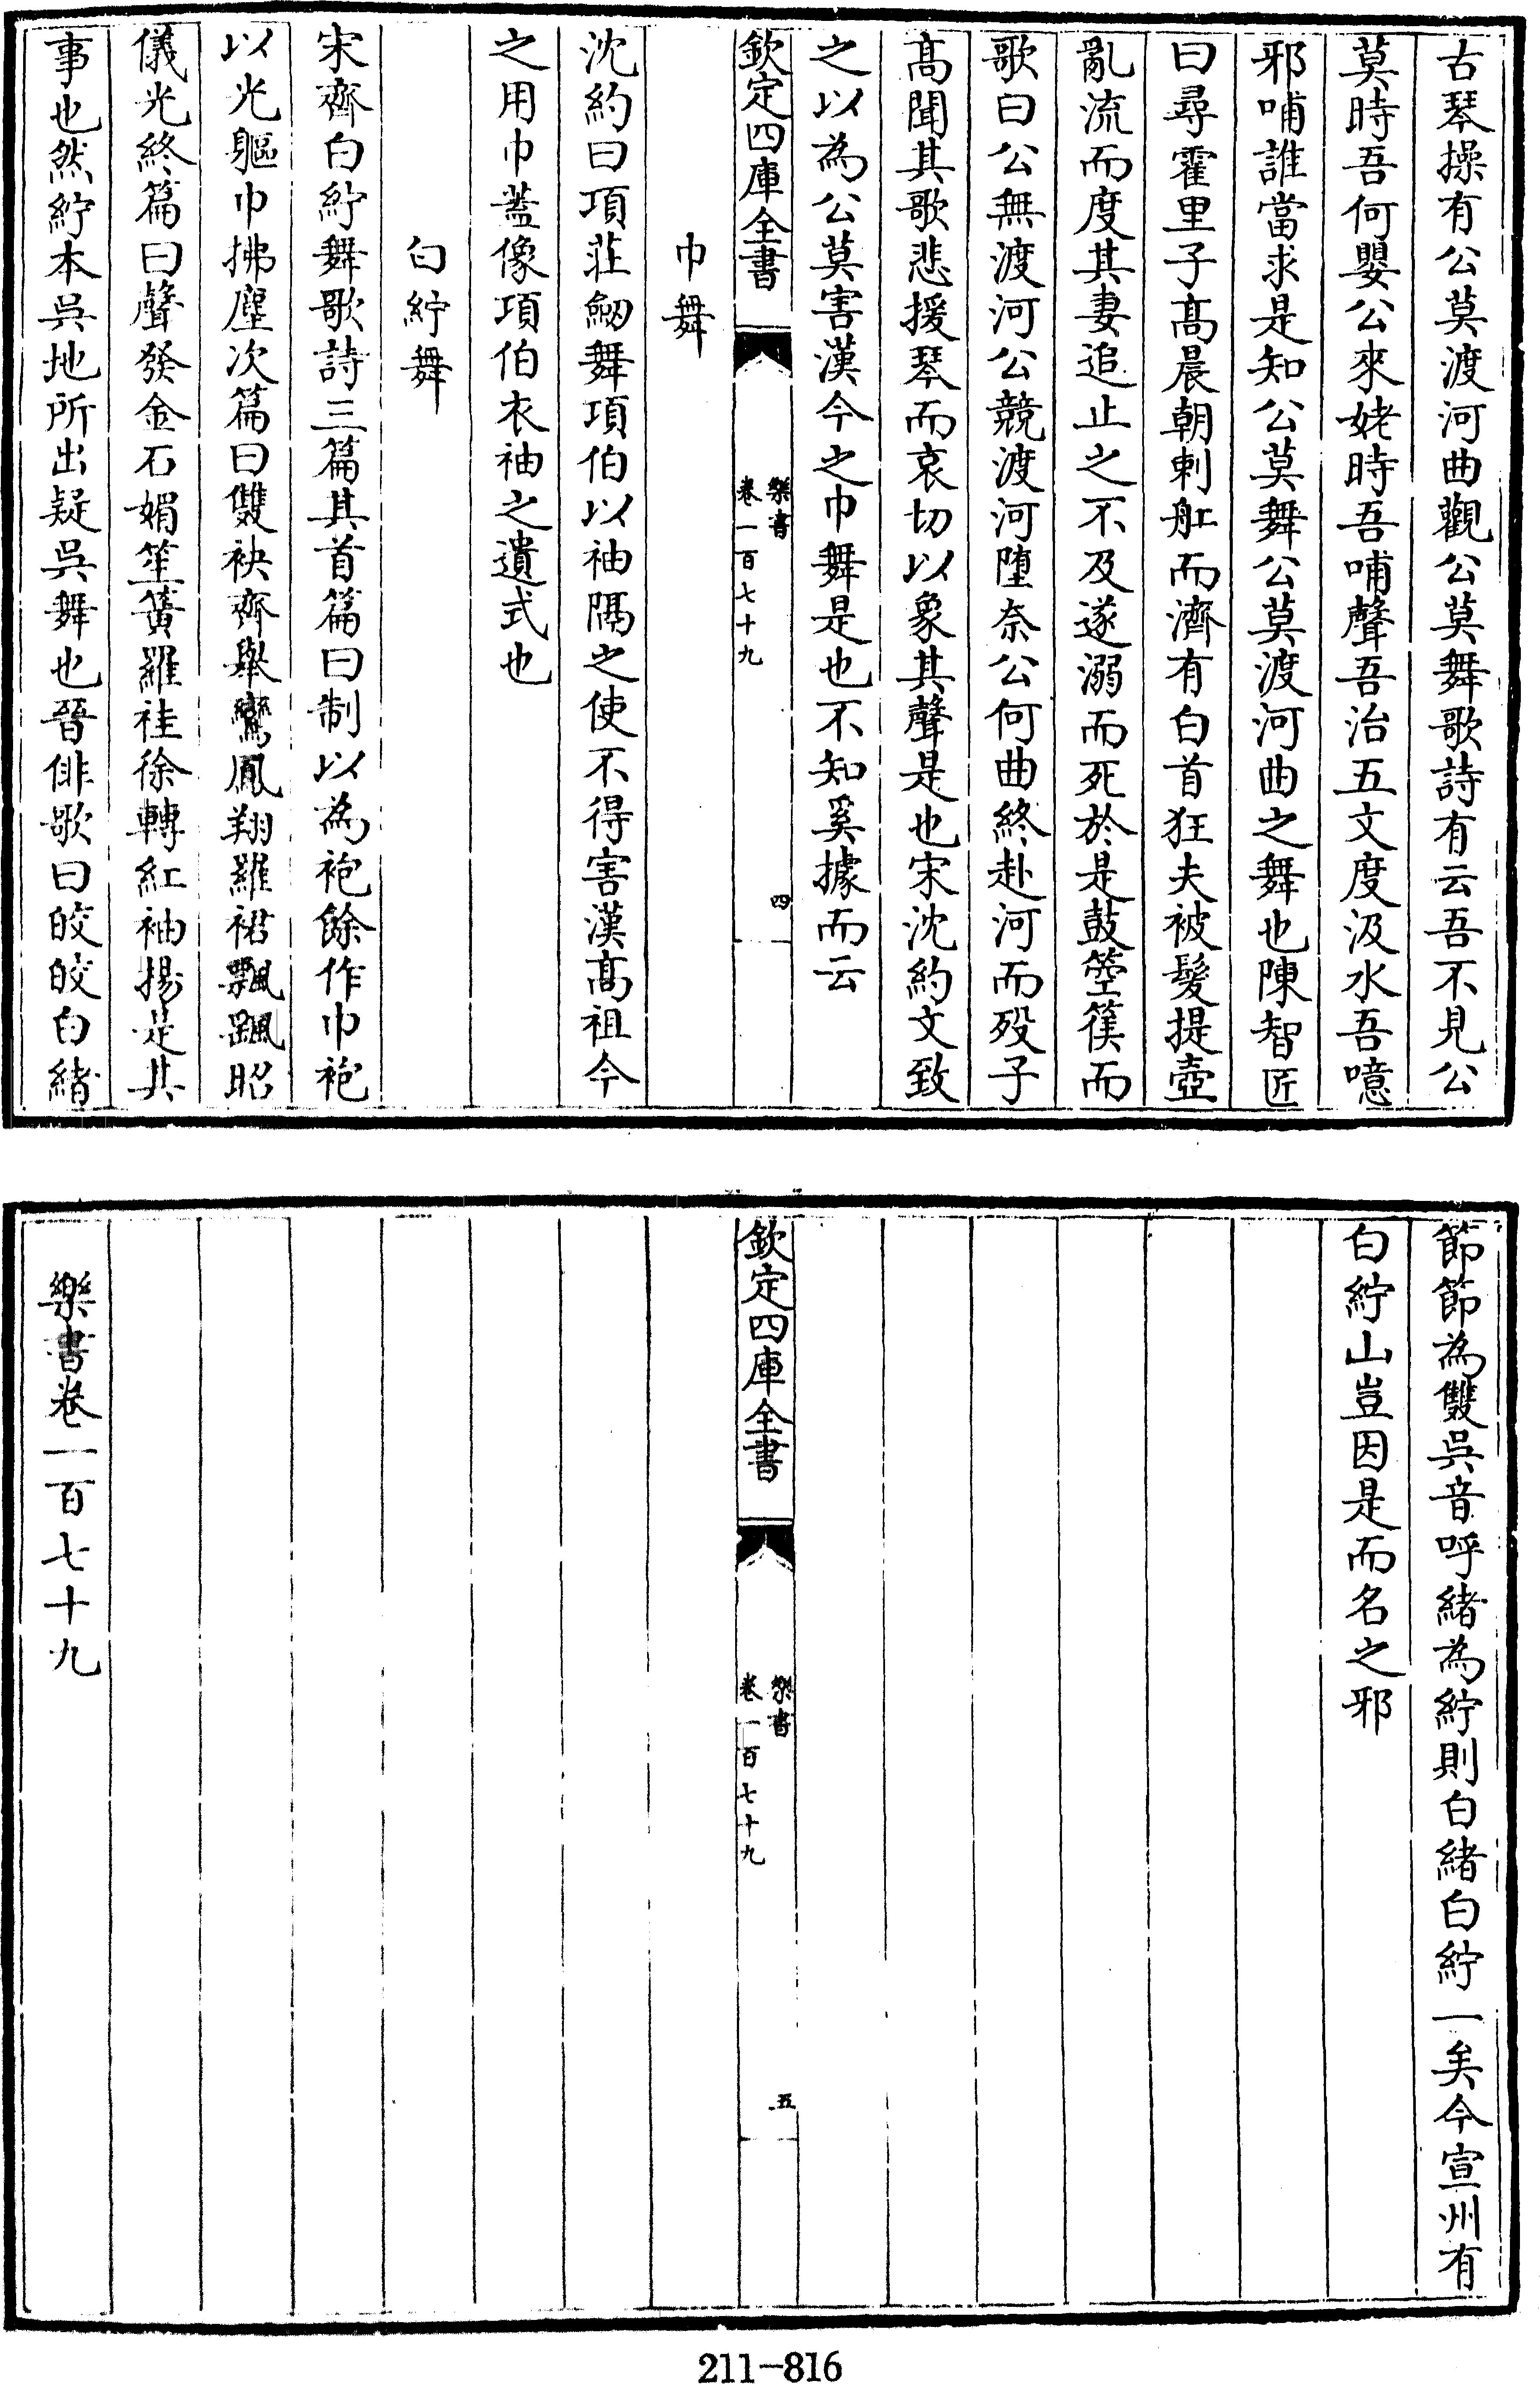 古琴操有公莫渡河曲觀公莫舞歌詩有云吾不見公
莫時吾何嬰公來姥時吾哺聲吾治五文度汲水吾噫
邪哺誰當求是知公莫舞公莫渡河曲之舞也陳智匠
曰尋霍里子髙晨朝刺舡而濟有白首狂夫被髮提壺
亂流而度其妻追止之不及遂溺而死於是鼓箜篌而
歌曰公無渡河公競渡河墮奈公何曲終赴河而殁子
髙聞其歌悲援琴而哀切以象其聲是也宋沈約文致
之以為公莫害漢今之巾舞是也不知奚據而云
欽定四庫全書
樂書
卷一百七十九
四
巾舞
沈約曰項莊劒舞項伯以袖隔之使不得害漢髙祖今
之用巾蓋像項伯衣袖之遺式也
白紵舞
宋齊白紵舞歌詩三篇其首篇曰制以為袍餘作巾袍
以光軀巾拂塵次篇曰雙袂齊舉鸞鳳翔羅裙飄颻昭
儀光終篇曰聲發金石媚笙簧羅袿徐轉紅袖揚是其
事也然紵本吳地所出疑吳舞也晉俳歌曰皎皎白緒
節節為雙吳音呼緒為紵則白緒白紵一矣今宣州有
白紵山豈因是而名之邪
欽定四庫全書
樂書
卷一百七十九
五
樂書卷一百七十九
211-816